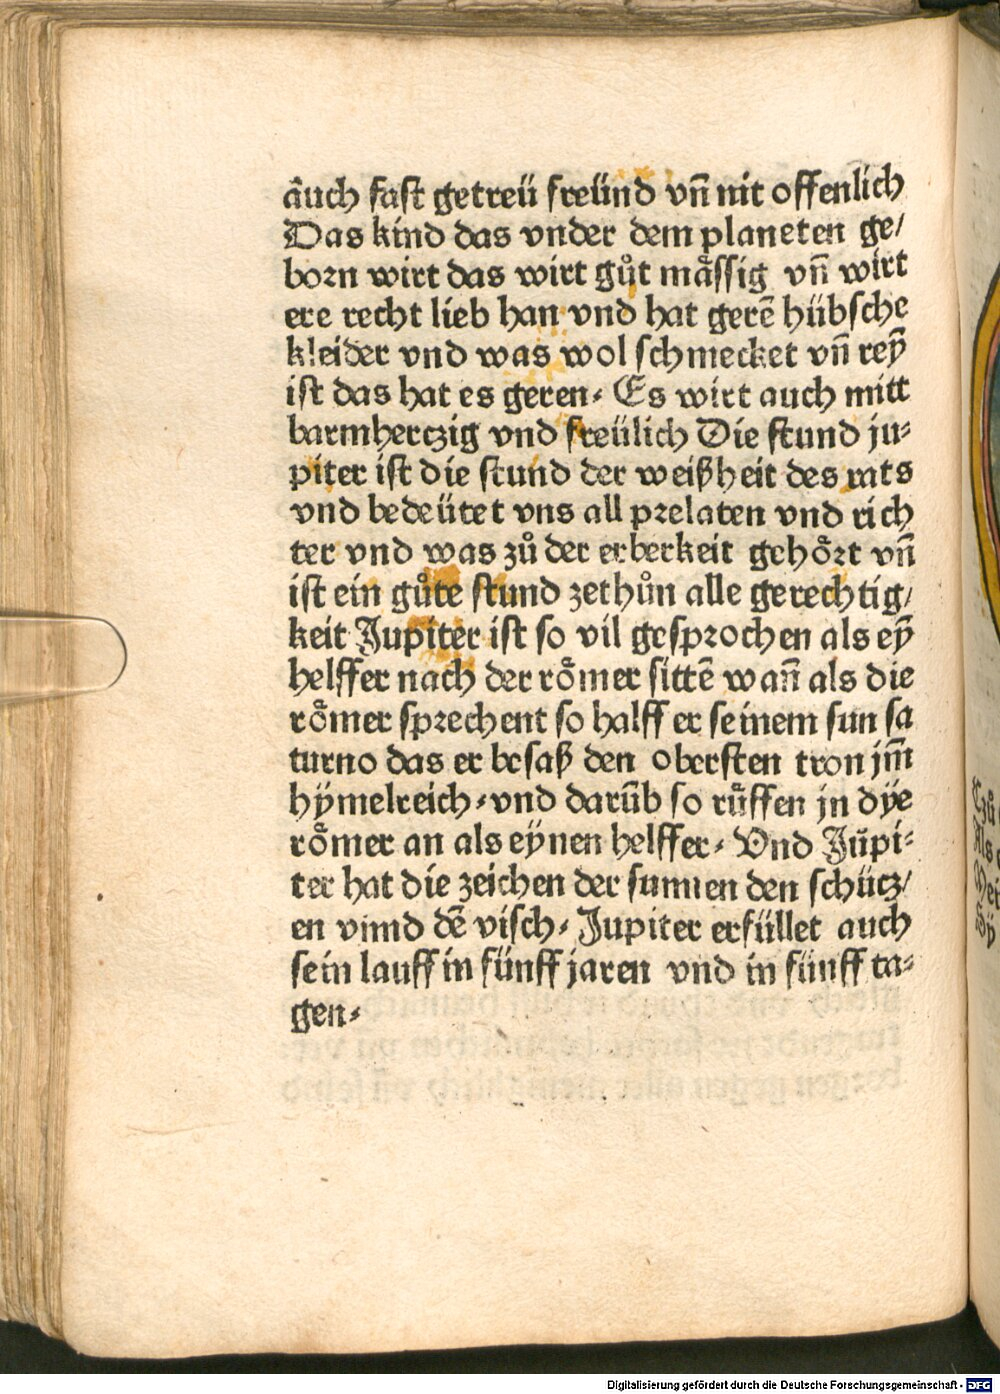 auch fast getreü freünd vñ nit offenlich
Das kind das vnder dem planeten ge/
born wirt das wirt gůt mässig vñ wirt
ere recht lieb han vnd hat gerē hübsche
kleider vnd was wol schmecket vñ reÿ
ist das hat es geren⸗ Es wirt auch mitt
barmhertzig vnd freülich Die stund ju⸗
piter ist die stund der weißheit des rats
vnd bedeütet vns all prelaten vnd rich
ter vnd was zů der erberkeit gehört vñ
ist ein gůte stund zethůn alle gerechtig/
keit Jupiter ist so vil gesprochen als eÿ
helffer nach der römer sittē wañ als die
römer sprechent so halff er seinem sun sa
turno das er besaß den obersten tron jm̄
hÿmelreich⸗ vnd darūb so rüffen jn dÿe
römer an als eÿnen helffer⸗ Vnd Jupi⸗
ter hat die zeichen der sunnen den schücz/
en vnnd dē visch⸗ Jupiter erfüllet auch
sein lauff in fünff jaren vnd in fünff ta⸗
gen⸗
Digitalisierung gefördert durch die Deutsche Forschungsgemeinschaft - DFG